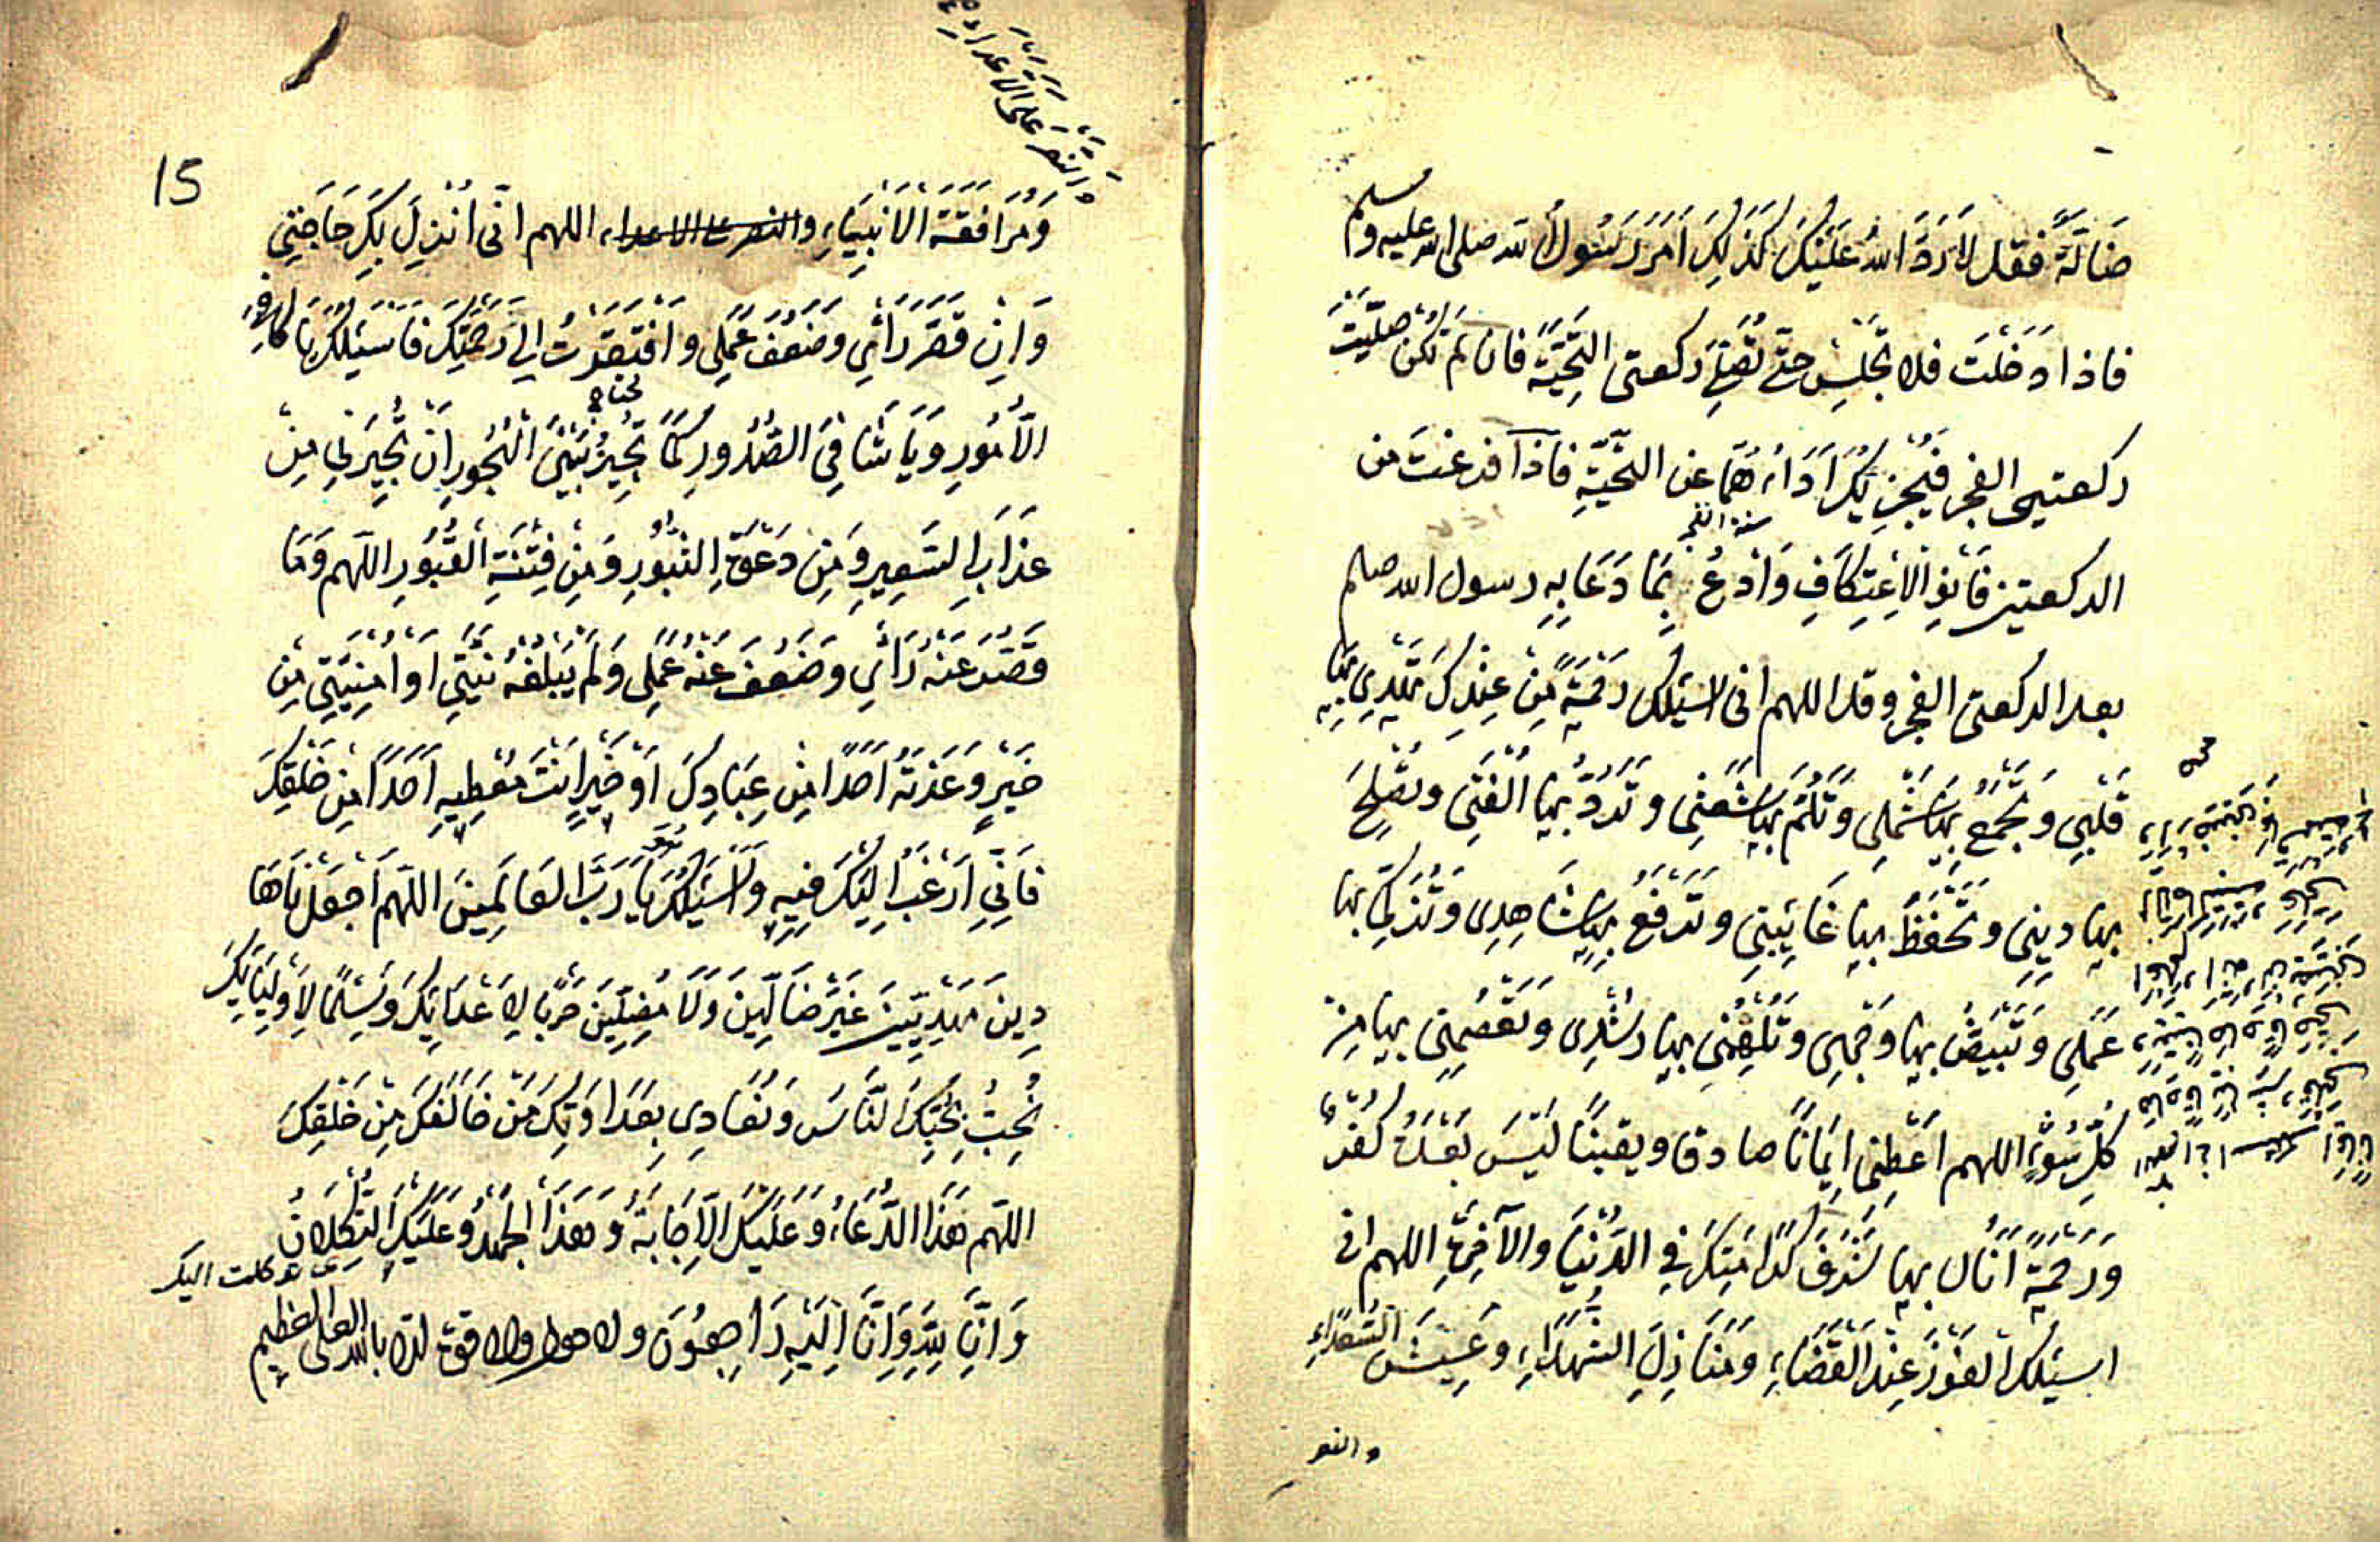 ضَالَّةً فقل لا رَدَّ اللهُ عَلَيْكَ كَذَلِكَ اَمَرَ رَسُولُ الله صلى الله عليه وسلم
فاذا دَخَلْتَ فلا تَجْلِسْ حتّى تُصَلِّي ركعتى التَّحِيَّةِ فان لَمْ تَكُنْ صَلَّيْتَ
ركعتي الفجر فَيُجْزِيْكَ اَدَاؤُهُمَا عن التَّحِيَّةِ فاذا فرغتَ من
سنة الفجر
الركعتين فَانْوِ الْاِعْتِكَافِ وَادْعُ بِمَا دَعَا بِهِ رسول الله صلعم
بعد الركعتى الفجر وقل اللهم انى اسئلك رَحْمَةً مِنْ عِنْدِكَ تَهْدِي بِهَا
قَلْبِي وَتَجْمَعُ بِهَا شَمْلِى وَتَلُمُّ بِهَا شَعَثِى وَتَرُدُّ بِهَا اُلْفَتِى وتُصْلِحُ
بها دِينِى وتَحْفَظُ بها غَائِبِى وتَرْفَعُ بها شَاهِدِى وَتُزَكِّى بها
عَمَلِى وَتُبَيِّضُ بها وَجْهِى وتُلْهِمُنِى بها رُشْدِى وَتَعْصِمُنِى بها مِنْ
كُلِّ سُوْءٍ اللهم اَعْطِنِى اِيمَانًا صادقا ويقينًا لَيْسَ بَعْدَهُ كُفْرٌ
وَرَحْمَةً اَنَالُ بها شَرَفَ كَرَامَتِكَ فِي الدُّنْيَا والآخِرَةِ اللهم انى
اسئلك الفَوْزَ عِنْدَ الْقَضَاءِ وَمَنَازِلَ الشُّهَدَاءِ وَعَيْشَ السُّعَدَاءِ
والنصر
15
والنَّصْرَ عَلَى الْاَعْدَاءِ
وَمُرَافَقَةَ الْاَنْبِيَاءِ والنصر على الاعداء اللهم انى اُنْزِلُ بِكَ حَاجَتِي
وَاِنْ قَصُرَ رَأْيِي وضَعُفَ عَمَلِى وافْتَقَرْتُ اِلَى رَحْمَتِكَ فَاَسْئَلُكَ يَا قَاضِيَ
الْاُمُورِ وَيَا شَافِيَ الصُّدُورِ كَمَا تُجِيرُ بَيْنَ الْبُحُورِ اَنْ تُجِيرَنِي مِنْ
عَذَابِ السَّعِيرِ وَمِنْ دَعْوَةِ الثُّبُورِ وَمِنْ فِتْنَةِ الْقُبُورِ اللّهم وَمَا
قَصُرَ عَنْهُ رَأْيِي وضَعُفَ عَنْهُ عَمَلِى وَلَمْ يَبْلُغْهُ نِيَّتِي اَوْ اُمْنِيَتِي مِنْ
خَيْرٍ وَعَدْتَهُ اَحَدًا مِنْ عِبَادِكَ اَوْ خَيْرٍ اَنْتَ مُعْطِيهِ اَحَدًا مِنْ خَلْقِكَ
فَاِنِّى اَرْغَبُ اِلَيْكَ فِيهِ واَسْئَلُكَ يَا رَبَّ العَالَمِينَ اللّهم اجْعَلْنَا هَا
دِينَ مَهْدِيِّينَ غَيْرَ ضَالِّينَ وَلَا مُضِلِّينَ حَرْبًا لِاَعْدَائِكَ وَسِلْمًا لِاَوْلِيَائِكَ
نُحِبُّ بِحُبِّكَ النَّاسَ وَنُعَادِى بِعَدَاوَتِكَ مَنْ خَالَفَكَ مِنْ خَلْقِكَ
اللّهم هَذَا الدُّعَاءُ وَعَلَيْكَ الْاِجَابَةُ وَهَذَا الْجُهْدُ وَعَلَيْكَ التُّكْلَانُ
وَاِنَّا لِلّهِ وَاِنَّا اِلَيْهِ رَاجِعُونَ ولا حول ولا قوة الا بالله العلى العظيم